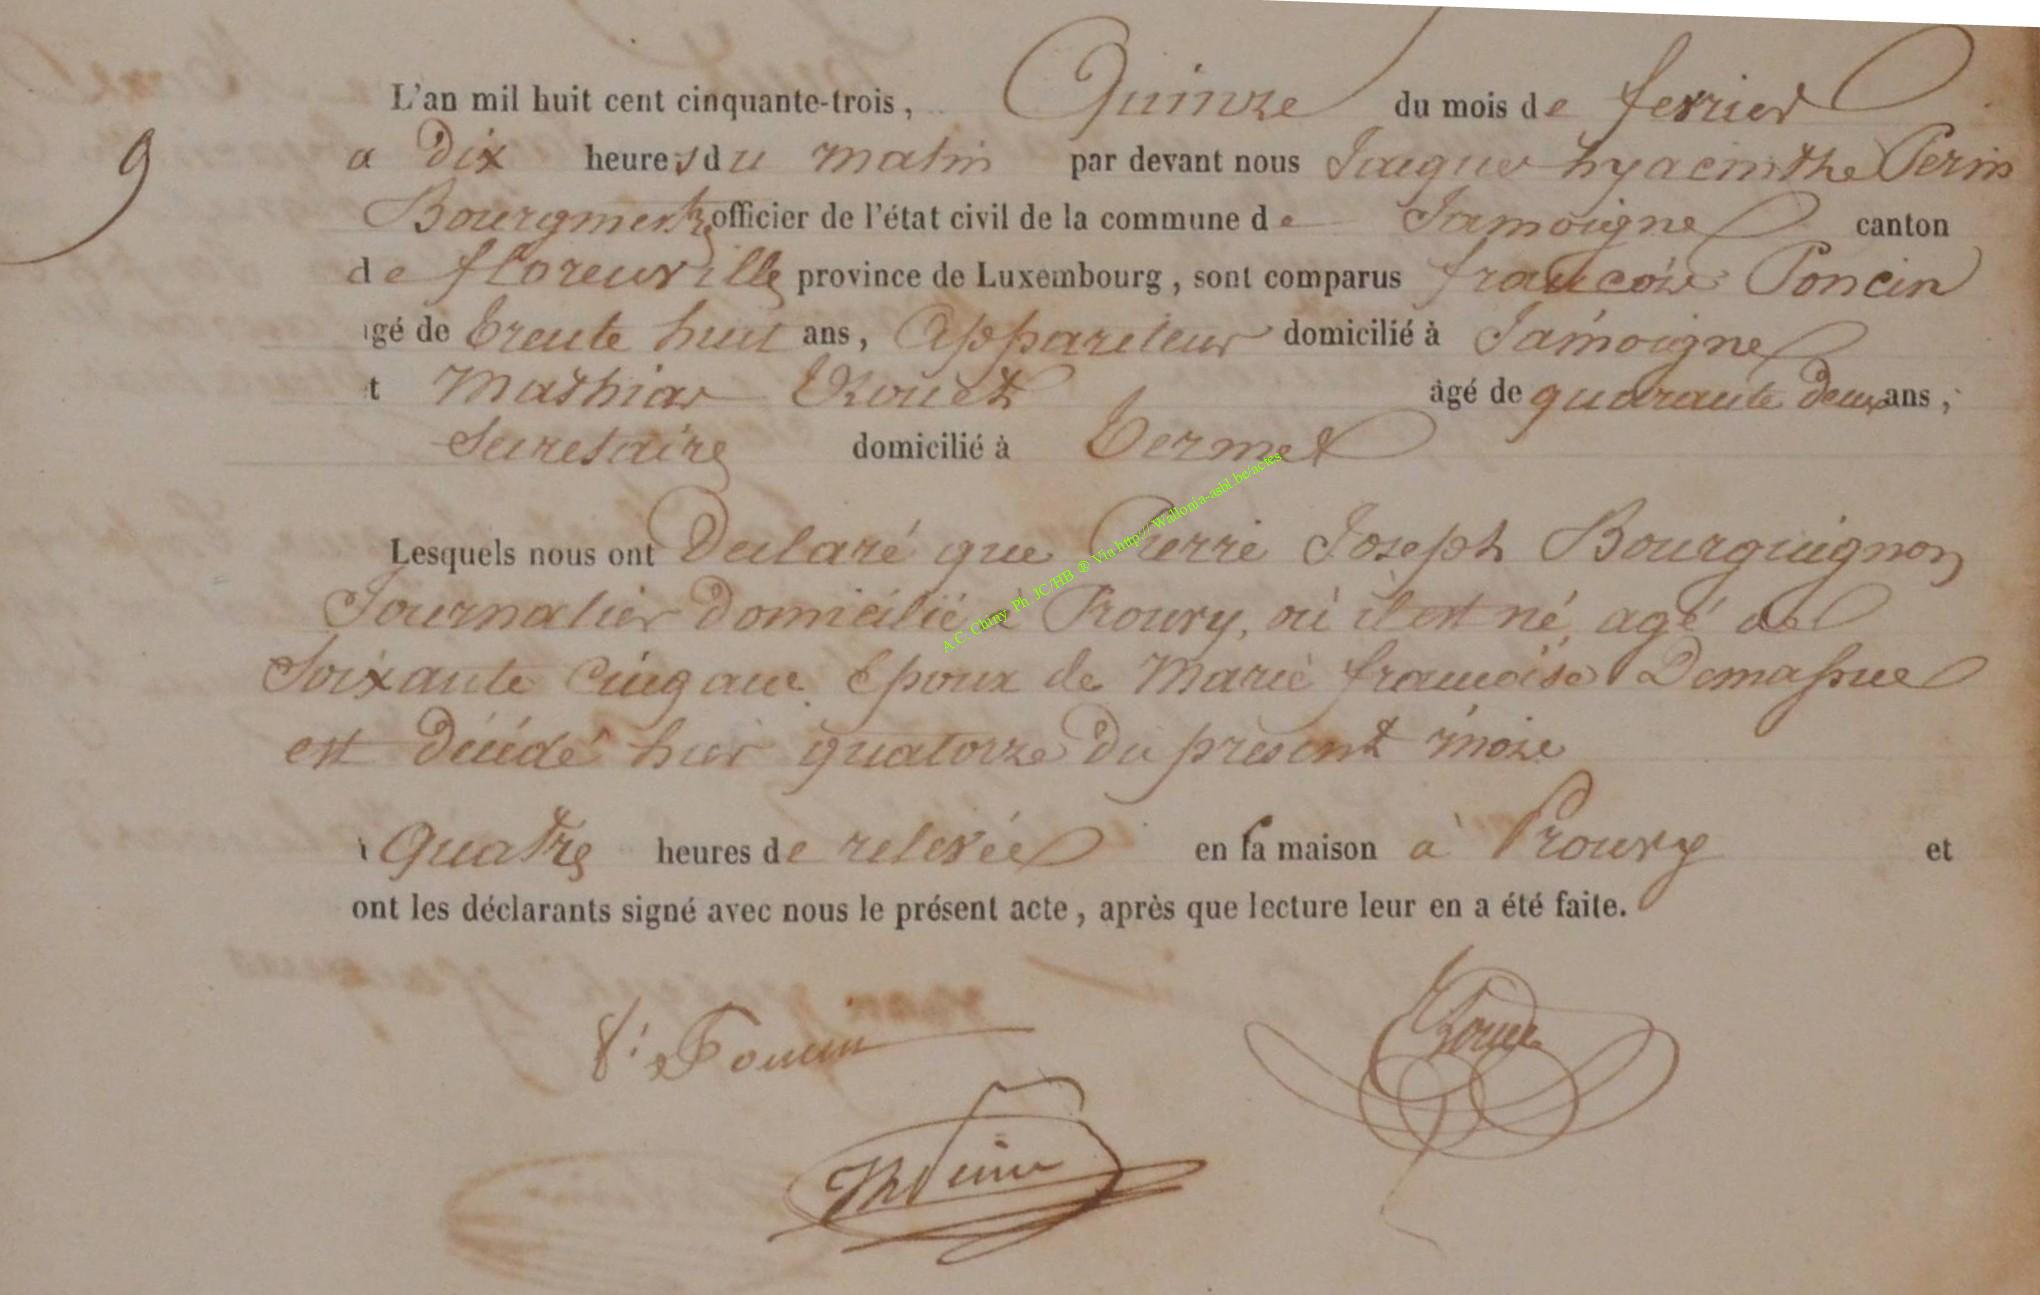 L'an mil huit cent cinquante-trois, Quinze du mois de fevrier
9
a dix heures du matin par devant nous Jaques hyacinthe Perin
Bourgmestre officier de l'état civil de la commune de Jamoigne canton
de floreuville province de Luxembourg, sont comparus francois Poncin
agé de trente huit ans, Appariteur domicilié à Jamoigne
t Mathias Rouet âgé de quarante deux ans,
Secretaire domicilié à Termes
Lesquels nous ont Declaré que Pierre Joseph Bourguignon
Journalier domicilié à Prouvy, où il est né, agé de
Soixante Cinq ans. Epoux de Marie francoise Demasme
est décédé hier quatorze du present mois
à Quatre heures de relevée en sa maison à Prouvy et
ont les déclarants signé avec nous le présent acte, après que lecture leur en a été faite.
Poncin
Rouet
Perin
A C. Chiny Ph JC/HB ® Via http://Wallonia-asbl.be/actes